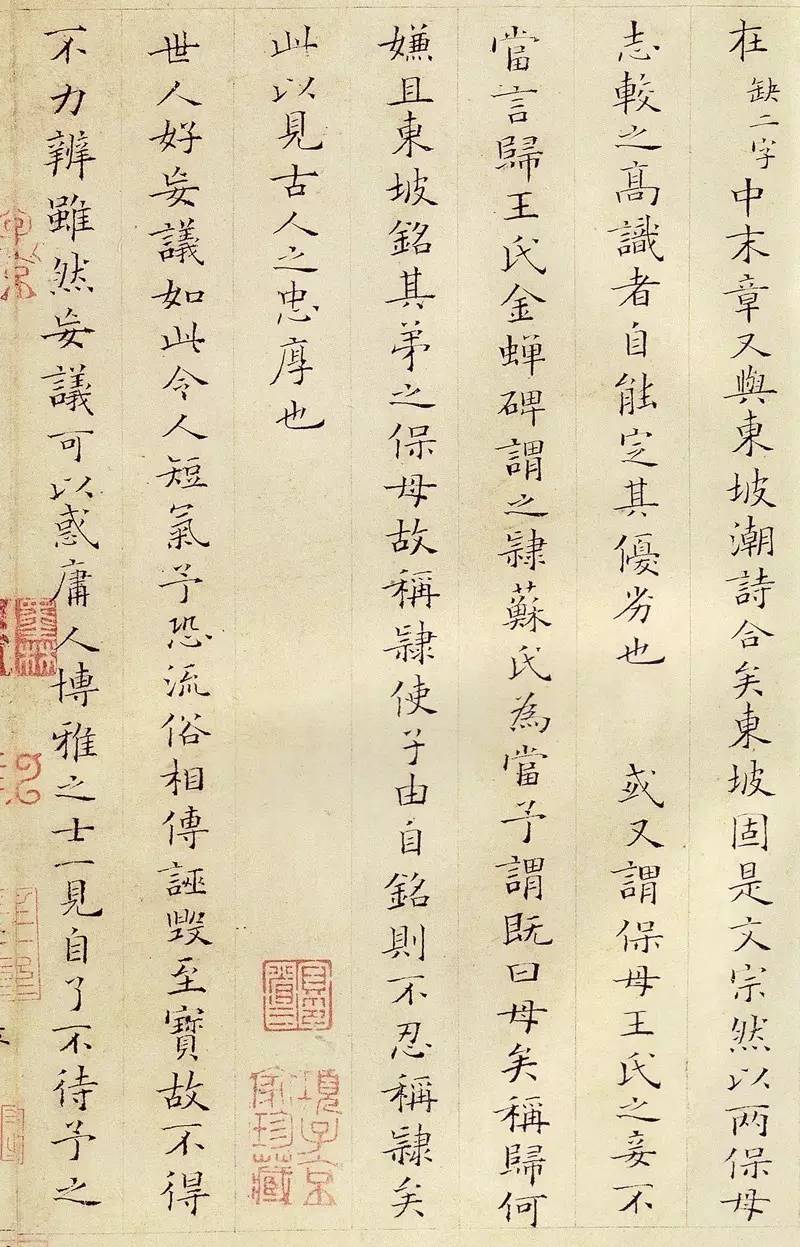 在缺二字中末章又與東坡潮詩合矣東坡固是文宗然以兩保母
志較之高識者自能定其優劣也 或又謂保母王氏之妾不
當言歸王氏金蟬碑謂之隸蘇氏為當予謂既曰母矣稱歸何
嫌且東坡銘其弟之保母故稱隸使子由自銘則不忍稱隸矣
此以見古人之忠厚也
世人好妄議如此令人短氣予恐流俗相傳誣毀至寶故不得
不力辨雖然妄議可以惑庸人博雅之士一見自了不待予之
項子京家珍藏